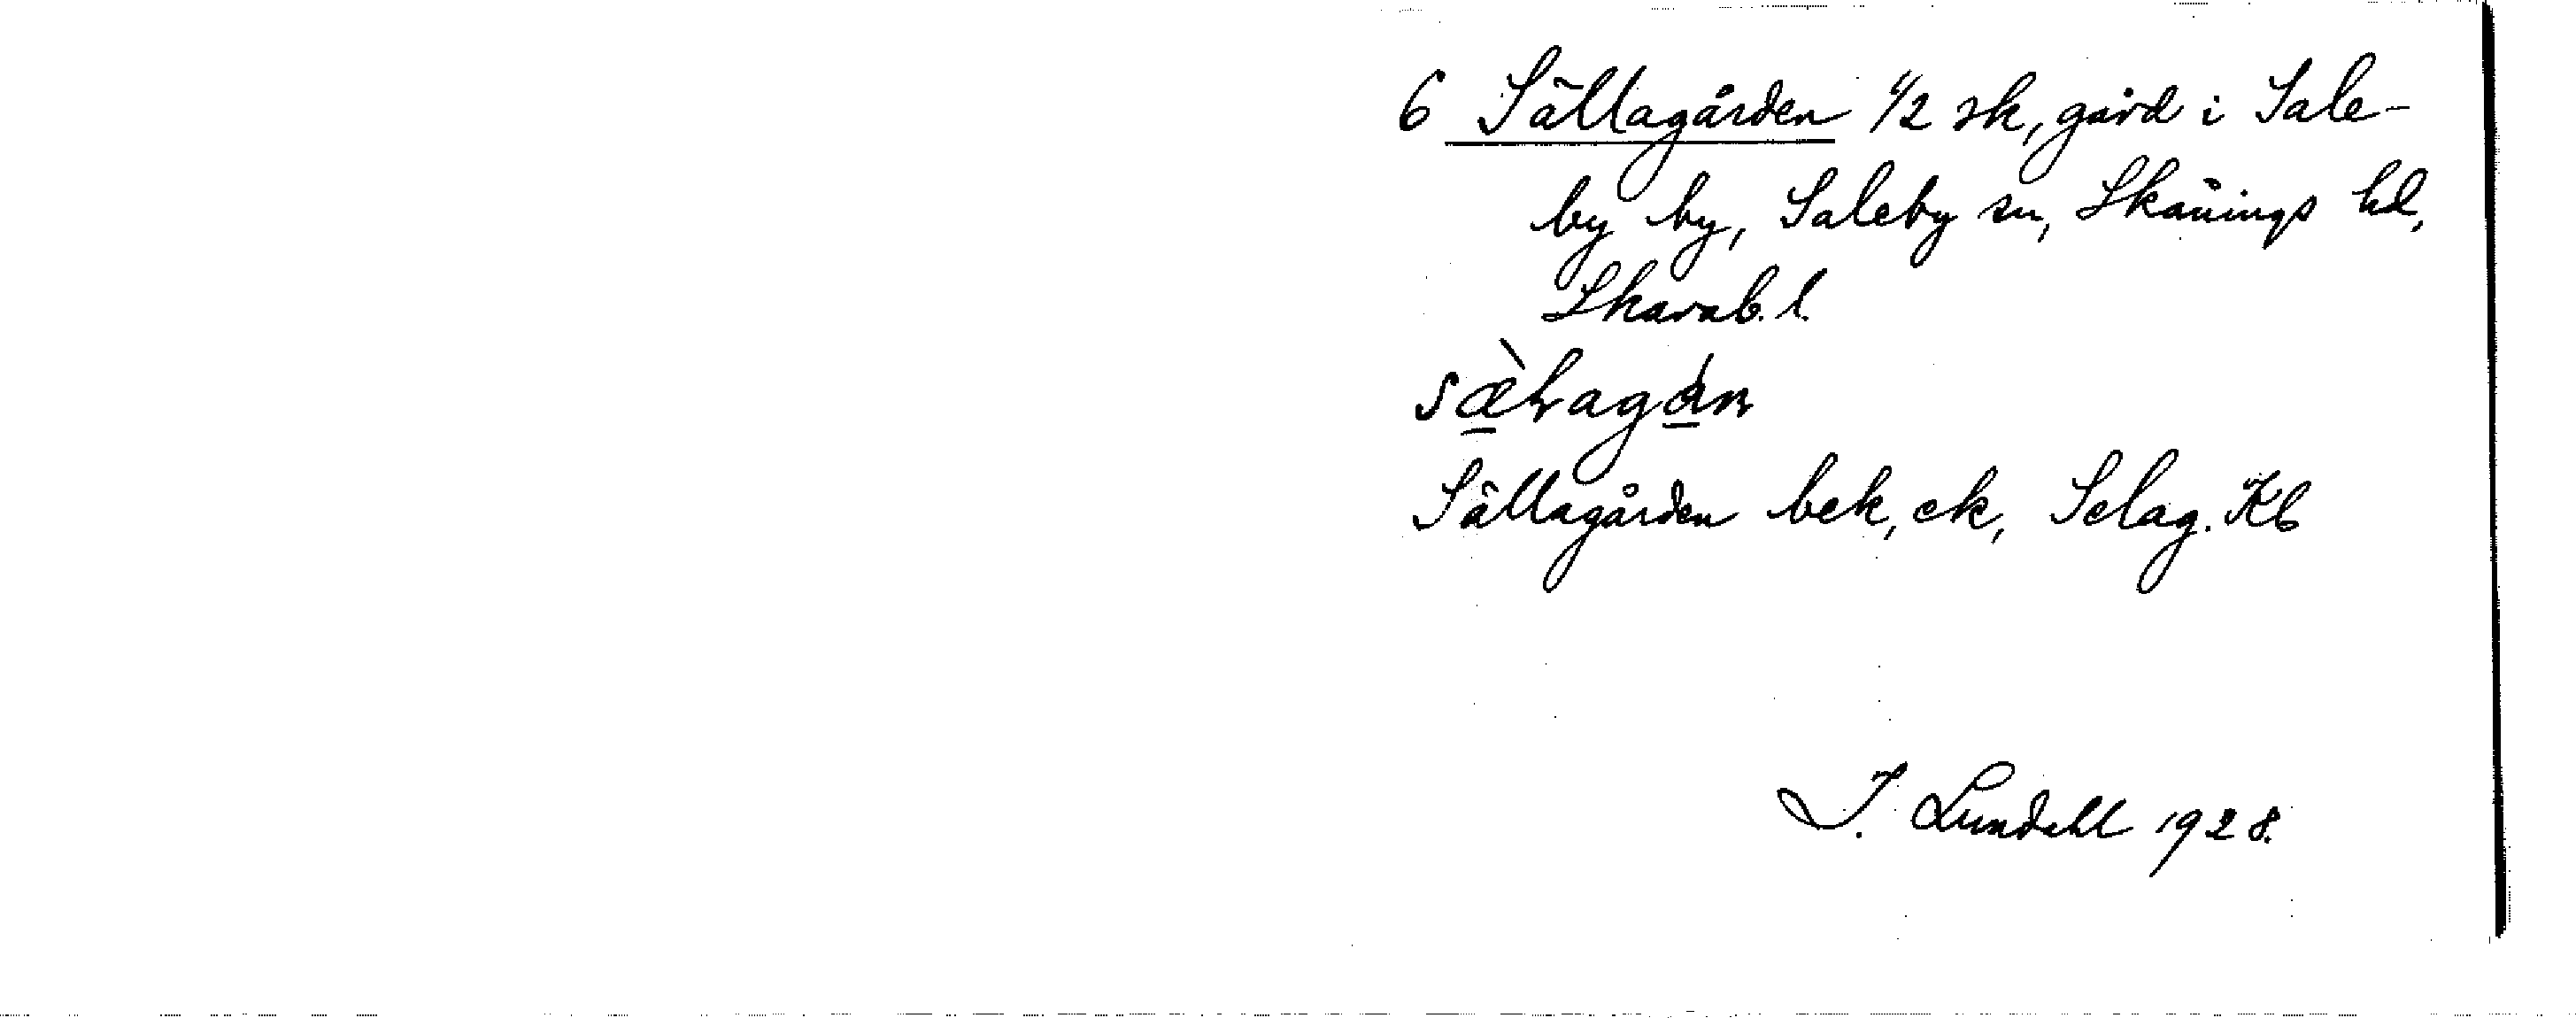 6 Sällagården 1/2 sk, gård i Sale-
by by, Saleby sn, Skånings hd,
Skarab. l.
Sällagården bek, ek, Selag. Kb
I. Lundahl 1928.